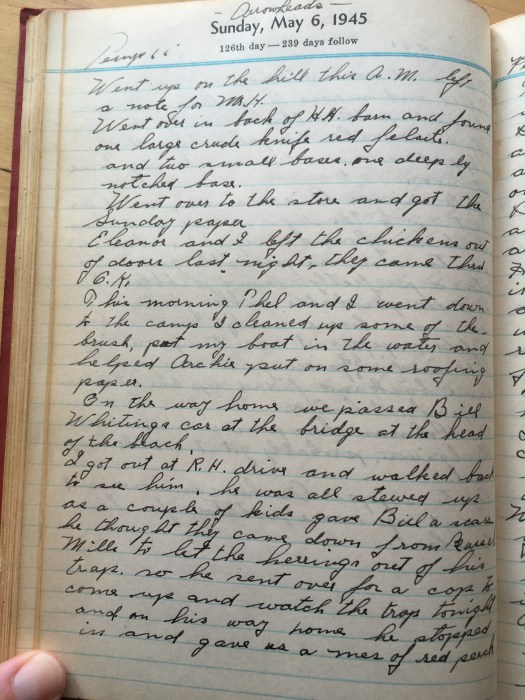 - Arrowheads -
Sunday, May 6, 1945
126th day — 239 days follow
Went up on the hill this A.M. left
a note for Mr. H.
Went over in back of H.H. barn and found
one large crude knife red felsite.
and two small bases. one deeply
notched base.
Went over to the store and got the
Sunday paper
Eleanor and I left the chickens out
of doors last night, they came thru
O.K.
This morning Phel and I went down
to the camp I cleaned up some of the
brush, put my boat in the water and
helped Archie put on some roofing
paper.
On the way home we passed Bill
Whitings car at the bridge at the head
of the beach.
I got out at R.H. drive and walked back
to see him. he was all stewed up
as a couple of kids gave Bill a scare
he thought they came down from
Mills to let the herrings out of his
trap. so he sent over for a cop to
come up and watch the trap tonight
and on his way home he stopped
in and gave us a mes of red perch